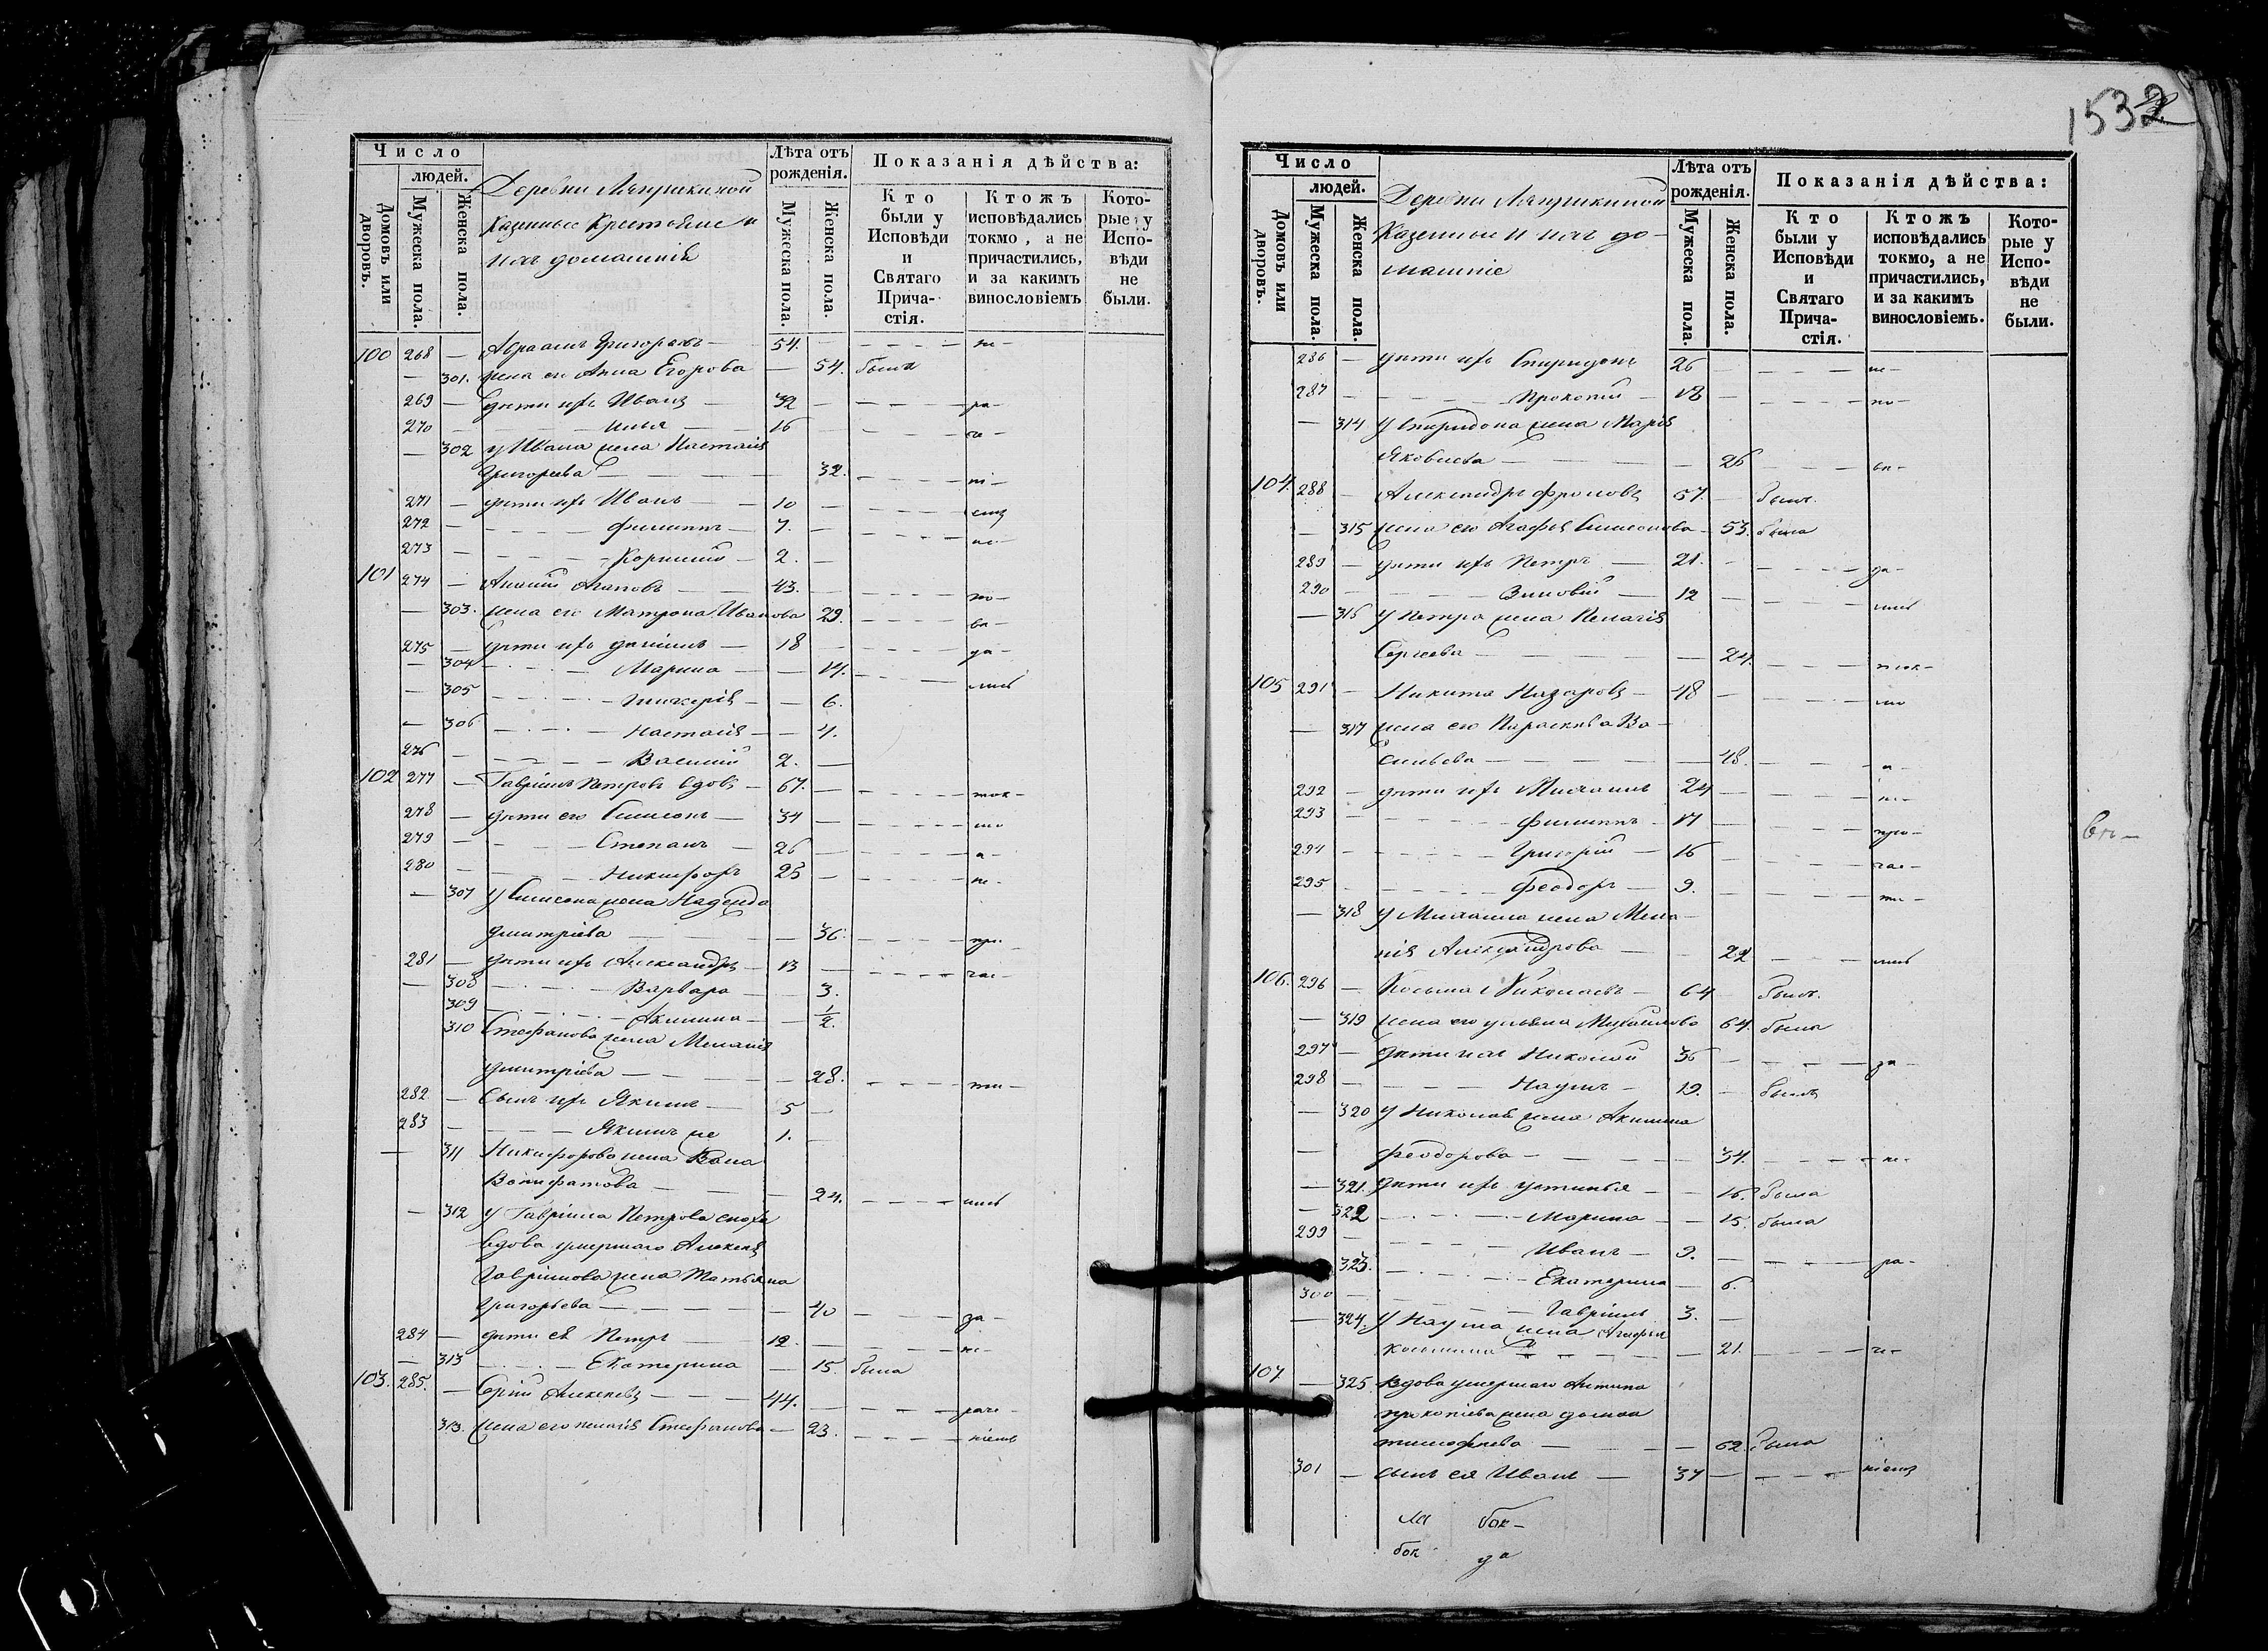 1532
Число
людей.
Домовъ или дворовъ.
Мужеска пола.
Женска пола.
Деревни Ляпушкиной
Казенные Крестьяне и
ихъ домашнія
Лѣта отъ рожденія.
Мужеска пола.
Женска пола.
Показанія дѣйства:
Кто были у Исповѣди и Святаго Причастія.
Ктожъ исповѣдались токмо, а не причастились, и за какимъ винословіемъ
Которые у Исповѣди не были.
100 268 — Авраамъ Григорьевъ — 54. — не —
— 301. жена его Анна Егорова — 54. была
269 — дѣти ихъ Иванъ — 32 — ра —
270 — Илья — 16
— 302 у Ивана жена Настасія
Григорьева — 32.
271 — дѣти ихъ Иванъ — 10 —
272 — Филиппъ — 7. —
273 — Корнилій — 2. —
101 274 — Ананій Агаповъ — 43. —
— 303. жена его Матрона Иванова 29.
275 — дѣти ихъ Даніилъ — 18 — да —
— 304 — Марина — 14.
— 305 — Гликерія — 6.
— 306 — Настасія — 4.
276 — Василій 2. —
102 277 — Гавріилъ Петровъ вдовъ — 67. — ток —
278 — дѣти его Симеонъ — 34 — мо
279 — Степанъ — 26 — а —
280 — Никифоръ 25 — не —
— 307 у Симеона жена Надежда
Дмитріева — 36. — при —
281 — дѣти ихъ Александръ — 13 — час —
— 308 — Варвара — 3.
309 — Акилина — 1/2.
310 Стефанова жена Меланія
Дмитріева — 28. — ти —
282 — Сынъ ихъ Якимъ — 5 —
283 — Якимъ же 1. —
— 311 Никифорова жена
Вонифатова — 24. — лись
— 312 у Гавріила Петрова сноха
вдова умершаго Алексѣя
Гавріилова жена Татьяна
Григорьева — 40 — за —
284 — дѣти ея Петръ — 12. — не —
— 313 — Екатерина — 15. была
103. 285. — Сергій Алексѣевъ — 44. — раче —
313. жена его Пелагія Стефанова — 23. — ніемъ
Число
людей.
Домовъ или дворовъ.
Мужеска пола.
Женска пола.
Деревни Ляпушкиной
Казенные и ихъ до-
машніе
Лѣта отъ рожденія.
Мужеска пола.
Женска пола.
Показанія дѣйства:
Кто были у Исповѣди и Святаго Причастія.
Ктожъ исповѣдались токмо, а не причастились, и за какимъ винословіемъ.
Которые у Исповѣди не были.
286 — дѣти ихъ Спиридонъ 26 — ис —
287 — Прокопій — 18 — по —
— 314 у Спиридона жена Марія
Яковлева — 26
вѣ —
104. 288 — Александръ Фроловъ 57. — былъ.
— 315 жена его Агафія Симеонова — 53. была
289 — дѣти ихъ Петръ — 21. — да —
290 — Зиновій — 12 — лись
— 316 у Петра жена Пелагія
Сергѣева — 24. — ток —
105 291 — Никита Назаровъ — 48 — мо
— 317 жена его Параскева Ва-
сильева — 48. — а —
292 — дѣти ихъ Михаилъ 24 — не —
293 — Филиппъ — 17 — при —
294 — Григорій — 16 — час —
295 — Феодоръ — 9. — ти —
— 318 у Михаила жена Мела-
нія Александрова — 22 — лись
106. 296 — Косьма Николаевъ — 64 былъ.
— 319 жена его Ульяна Михайлова 64. была
297 — дѣти ихъ Николай 36 — за —
298 — Наумъ — 19. — былъ
— 320 у Николая жена Акилина
— Феодорова — 34. — не —
— 321. дѣти ихъ Устинья — 16. была
— 322 — Марина — 15. была
299 — Иванъ — 9. — ра —
323. — Екатерина — 6.
300 — Гавріилъ 3. —
— 324. у Наума жена Агафія
21. — че —
107 — 325 вдова умершаго Антипа
Прокопіева жена Домна
Тимофѣева — 62 была
301 — сынъ ея Иванъ — 37 — ніемъ